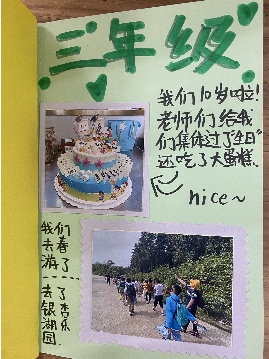 三年级
我们10岁啦!
老师们给我
们集体过了"生日"
还吃了大蛋糕.
nice~
我们
去春
游了
去了
银杏
湖乐
园.